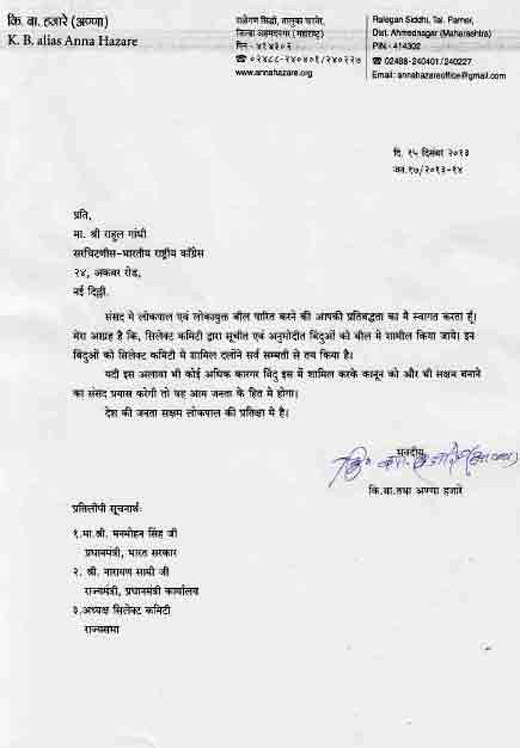 कि. बा. हजारे (अण्णा)
K. B. alias Anna Hazare
राळेगण सिद्धी, तालुका पारनेर,
जिल्हा अहमदनगर (महाराष्ट्र)
पिन - ४१४३०२
☎ ०२४८८-२४०४०१/२४०२२७
www.annahazare.org
Ralegan Siddhi, Tal. Parner,
Dist. Ahmednagar (Maharashtra)
PIN - 414302
☎ 02488-240401/240227
Email: annahazareoffice@gmail.com
दि. १५ दिसंबर २०१३
जन.१७/२०१३-१४
प्रति,
मा. श्री राहुल गांधी
सरचिटणीस-भारतीय राष्ट्रीय काँग्रेस
२४, अकबर रोड,
नई दिल्ली.
संसद मे लोकपाल एवं लोकायुक्त बील पारित करने की आपकी प्रतिबद्धता का मै स्वागत करता हूँ।
मेरा आग्रह है कि, सिलेक्ट कमिटी द्वारा सूचीत एवं अनुमोदीत बिंदुओं को बील मे शामील किया जाये। इन
बिंदुओं को सिलेक्ट कमिटी मे शामिल दलोंने सर्व सम्मती से तय किया है।
यदी इस अलावा भी कोई अधिक कारगर बिंदु इस में शामिल करके कानून को और भी सक्षम बनाने
का संसद प्रयास करेगी तो वह आम जनता के हित मे होगा।
देश की जनता सक्षम लोकपाल की प्रतिक्षा मे है।
भवदीय,
कि.बा.तथा अण्णा हजारे
प्रतिलीपी सूचनार्थः
१.मा.श्री. मनमोहन सिंह जी
प्रधानमंत्री, भारत सरकार
२. श्री. नारायण सामी जी
राज्यमंत्री, प्रधानमंत्री कार्यालय
३.अध्यक्ष सिलेक्ट कमिटी
राज्यसभा